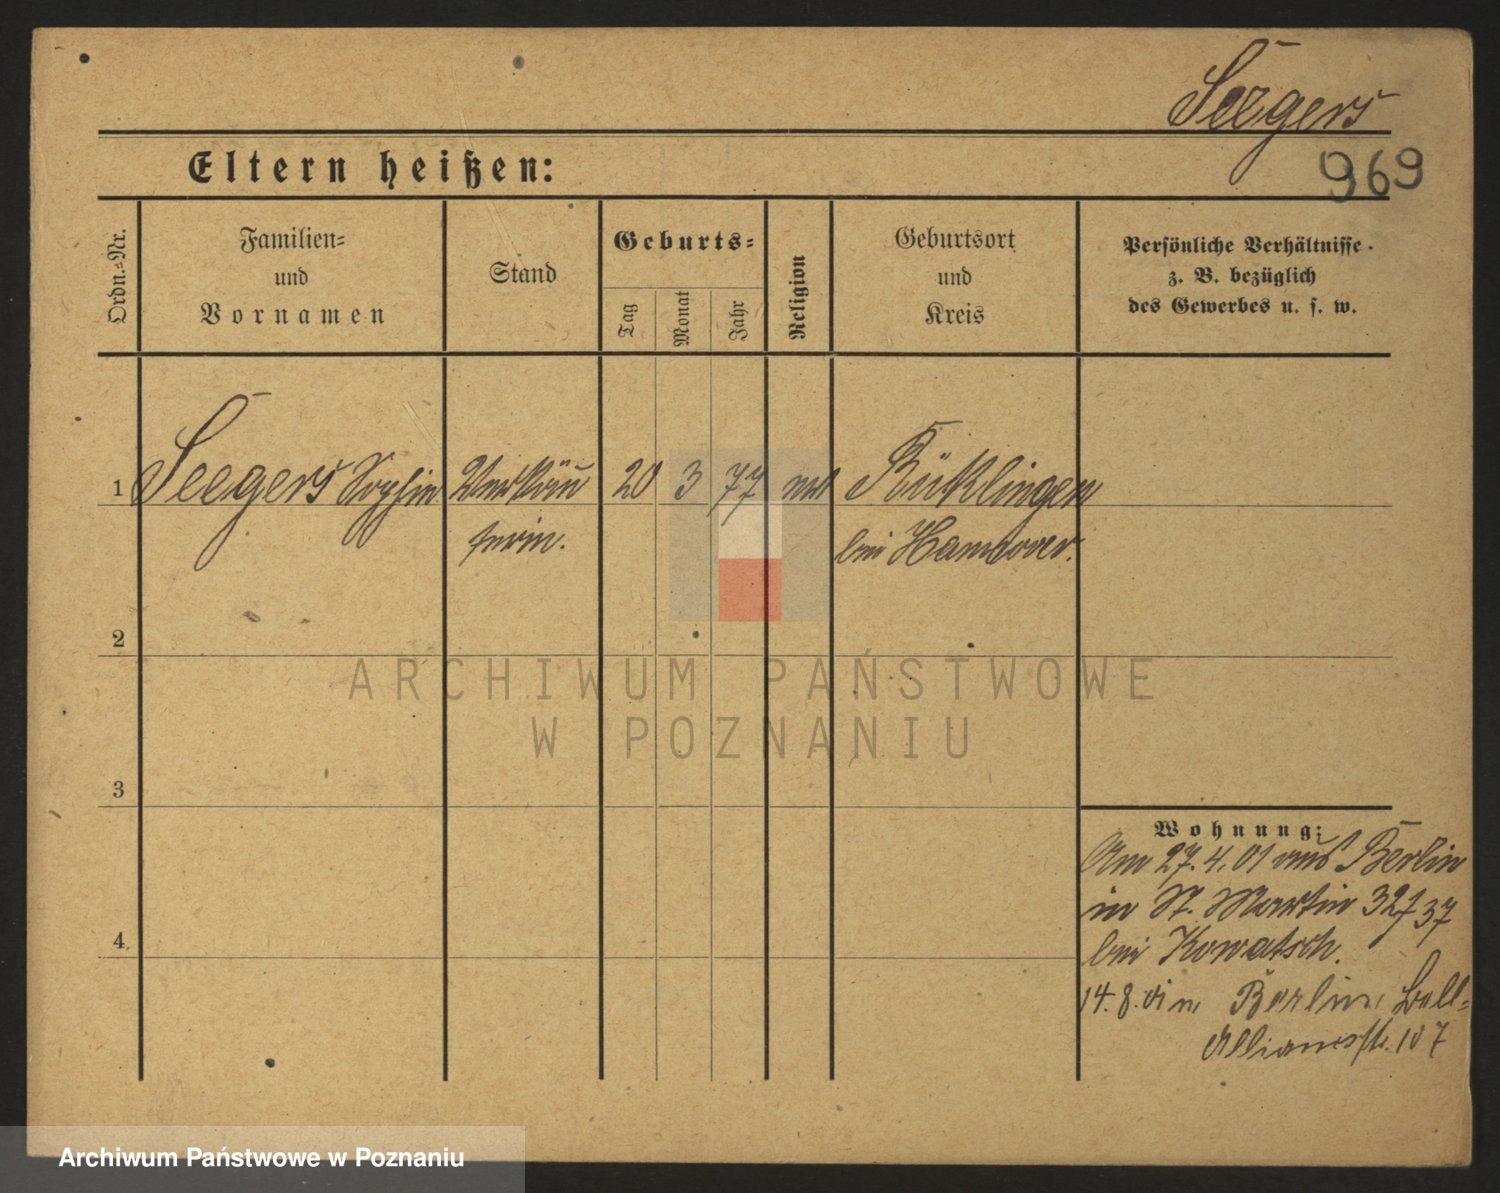 Seegers
Eltern heißen:
969
Ordn.-Nr.
Familien-
und
Vornamen
Stand
Geburts-
Tag
Monat
Jahr
Religion
Geburtsort
und
Kreis
Persönliche Verhältnisse
z. B. bezüglich
des Gewerbes u. s. w.
1 Seegers Sophie Verkäu 20 3 77 Rücklingen
ferin. bei Hannover.
2
3
4
Wohnung:
Am 27.4.01 aus Berlin
in St. Martin 32/37
bei Kowatsch.
14.8.01 n. Berlin, Bell-
Alliancestr. 107
ARCHIWUM PAŃSTWOWE
W POZNANIU
Archiwum Państwowe w Poznaniu